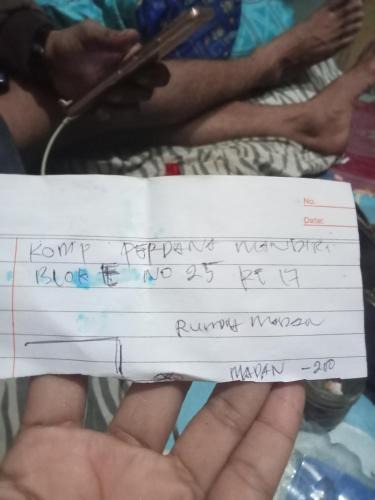 No.
Date:
KOMP PERDANA MANDIRI
BLOK E NO 25 RT 17
RUMAH MADAN
MADAN -200